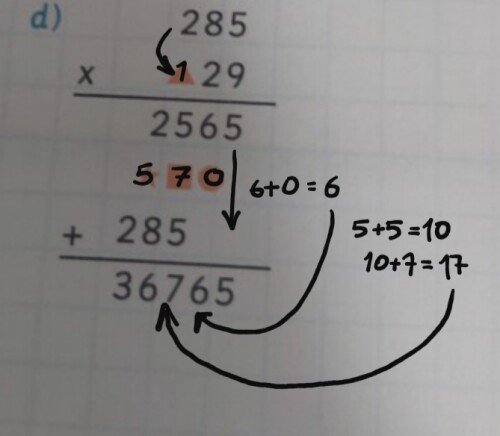 d)
285
x 129
2565
570
6+0=6
+ 285
5+5=10
10+7=17
36765